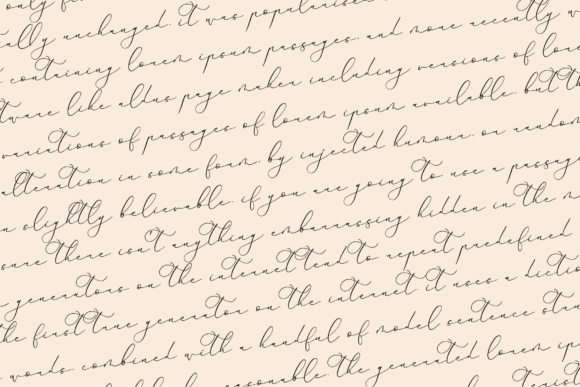 only
unchanged. it was popularised
containing lorem ipsum passages, and more recently
like aldus page maker including versions of
variations of passages of lorem ipsum available, but
alteration in some form, by injected humour, or
slightly believable. if you are going to use a
sure there isn't anything embarrassing hidden in the
generators on the internet tend to repeat predefined
the first true generator on the internet. it uses a
words, combined with a handful of model sentence
reasonable. the generated lorem